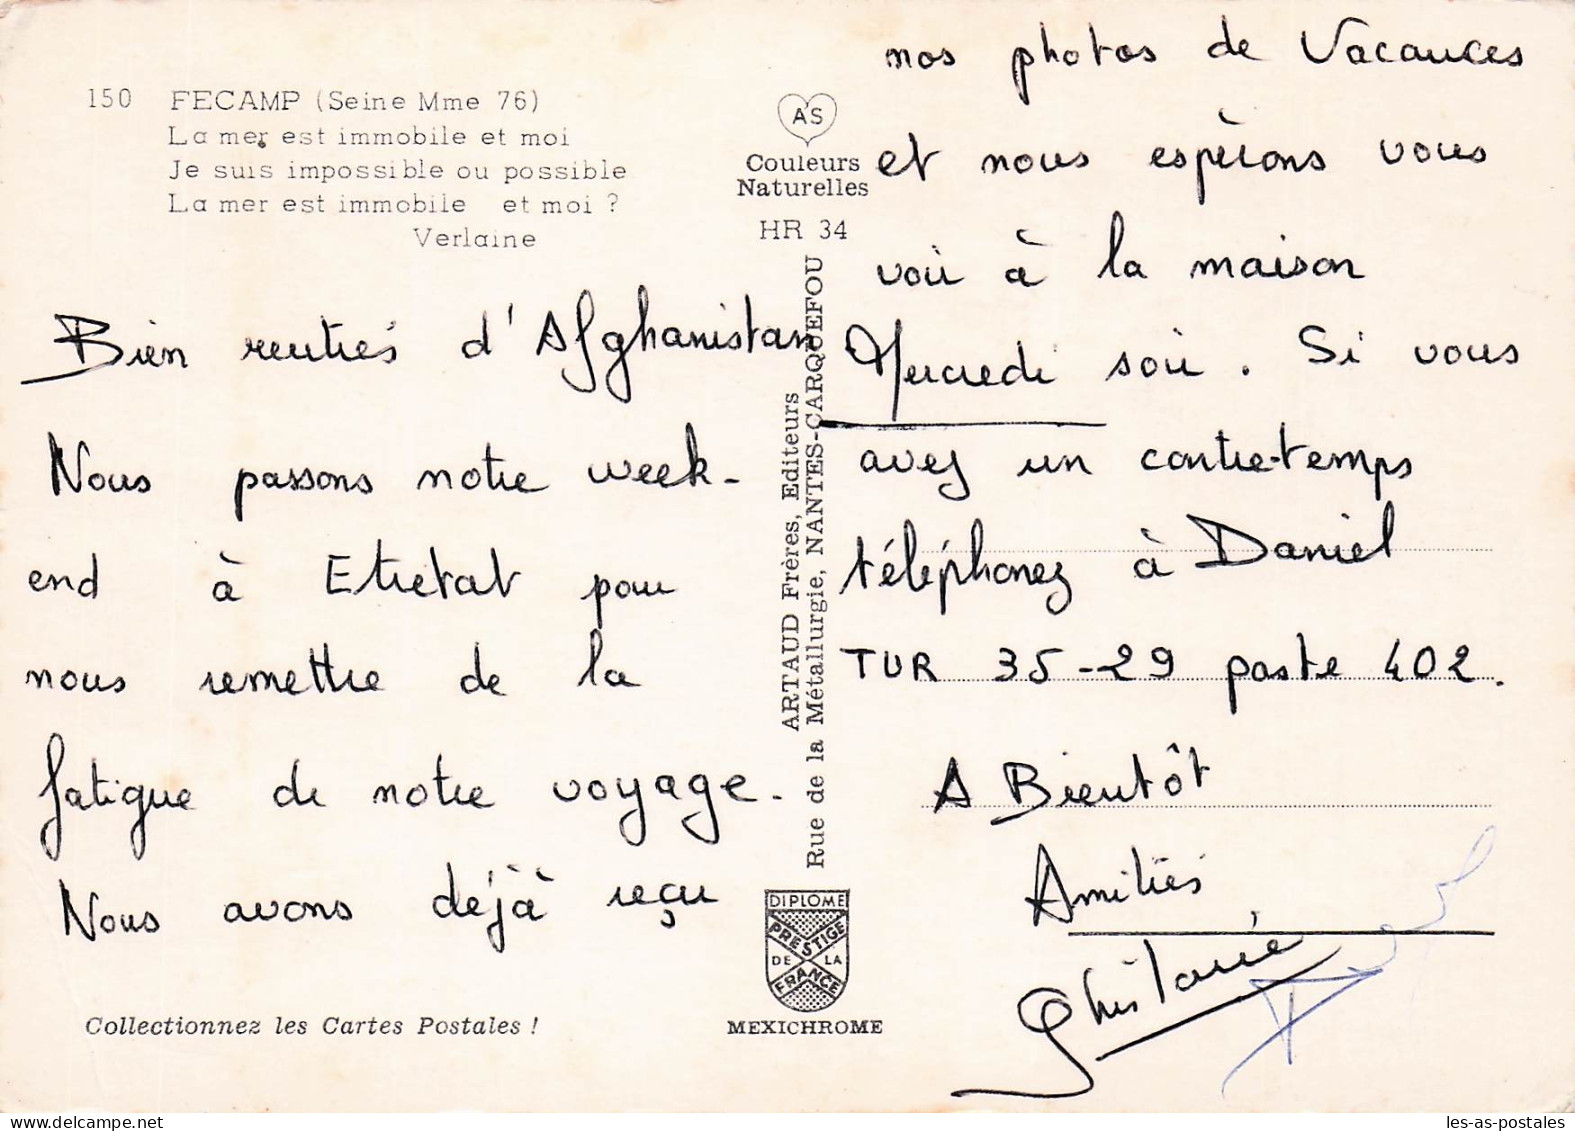 150 FECAMP (Seine Mme 76)
La mer est immobile et moi
Je suis impossible ou possible
La mer est immobile et moi ?
Verlaine
Bien rentrés d'Afghanistan
Nous passons notre week-
end à Etretat pour
nous remettre de la
fatigue de notre voyage.
Nous avons déjà reçu
Collectionnez les Cartes Postales !
AS
Couleurs
Naturelles
HR 34
ARTAUD Frères, Editeurs
Rue de la Métallurgie, NANTES-CARQUEFOU
DIPLOME
PRESTIGE
DE LA
FRANCE
MEXICHROME
nos photos de Vacances
et nous espèrons vous
voir à la maison
Mercredi soir. Si vous
avez un contre-temps
téléphonez à Daniel
TUR 35-29 poste 402.
A Bientôt
Amitiés
les-as-postales